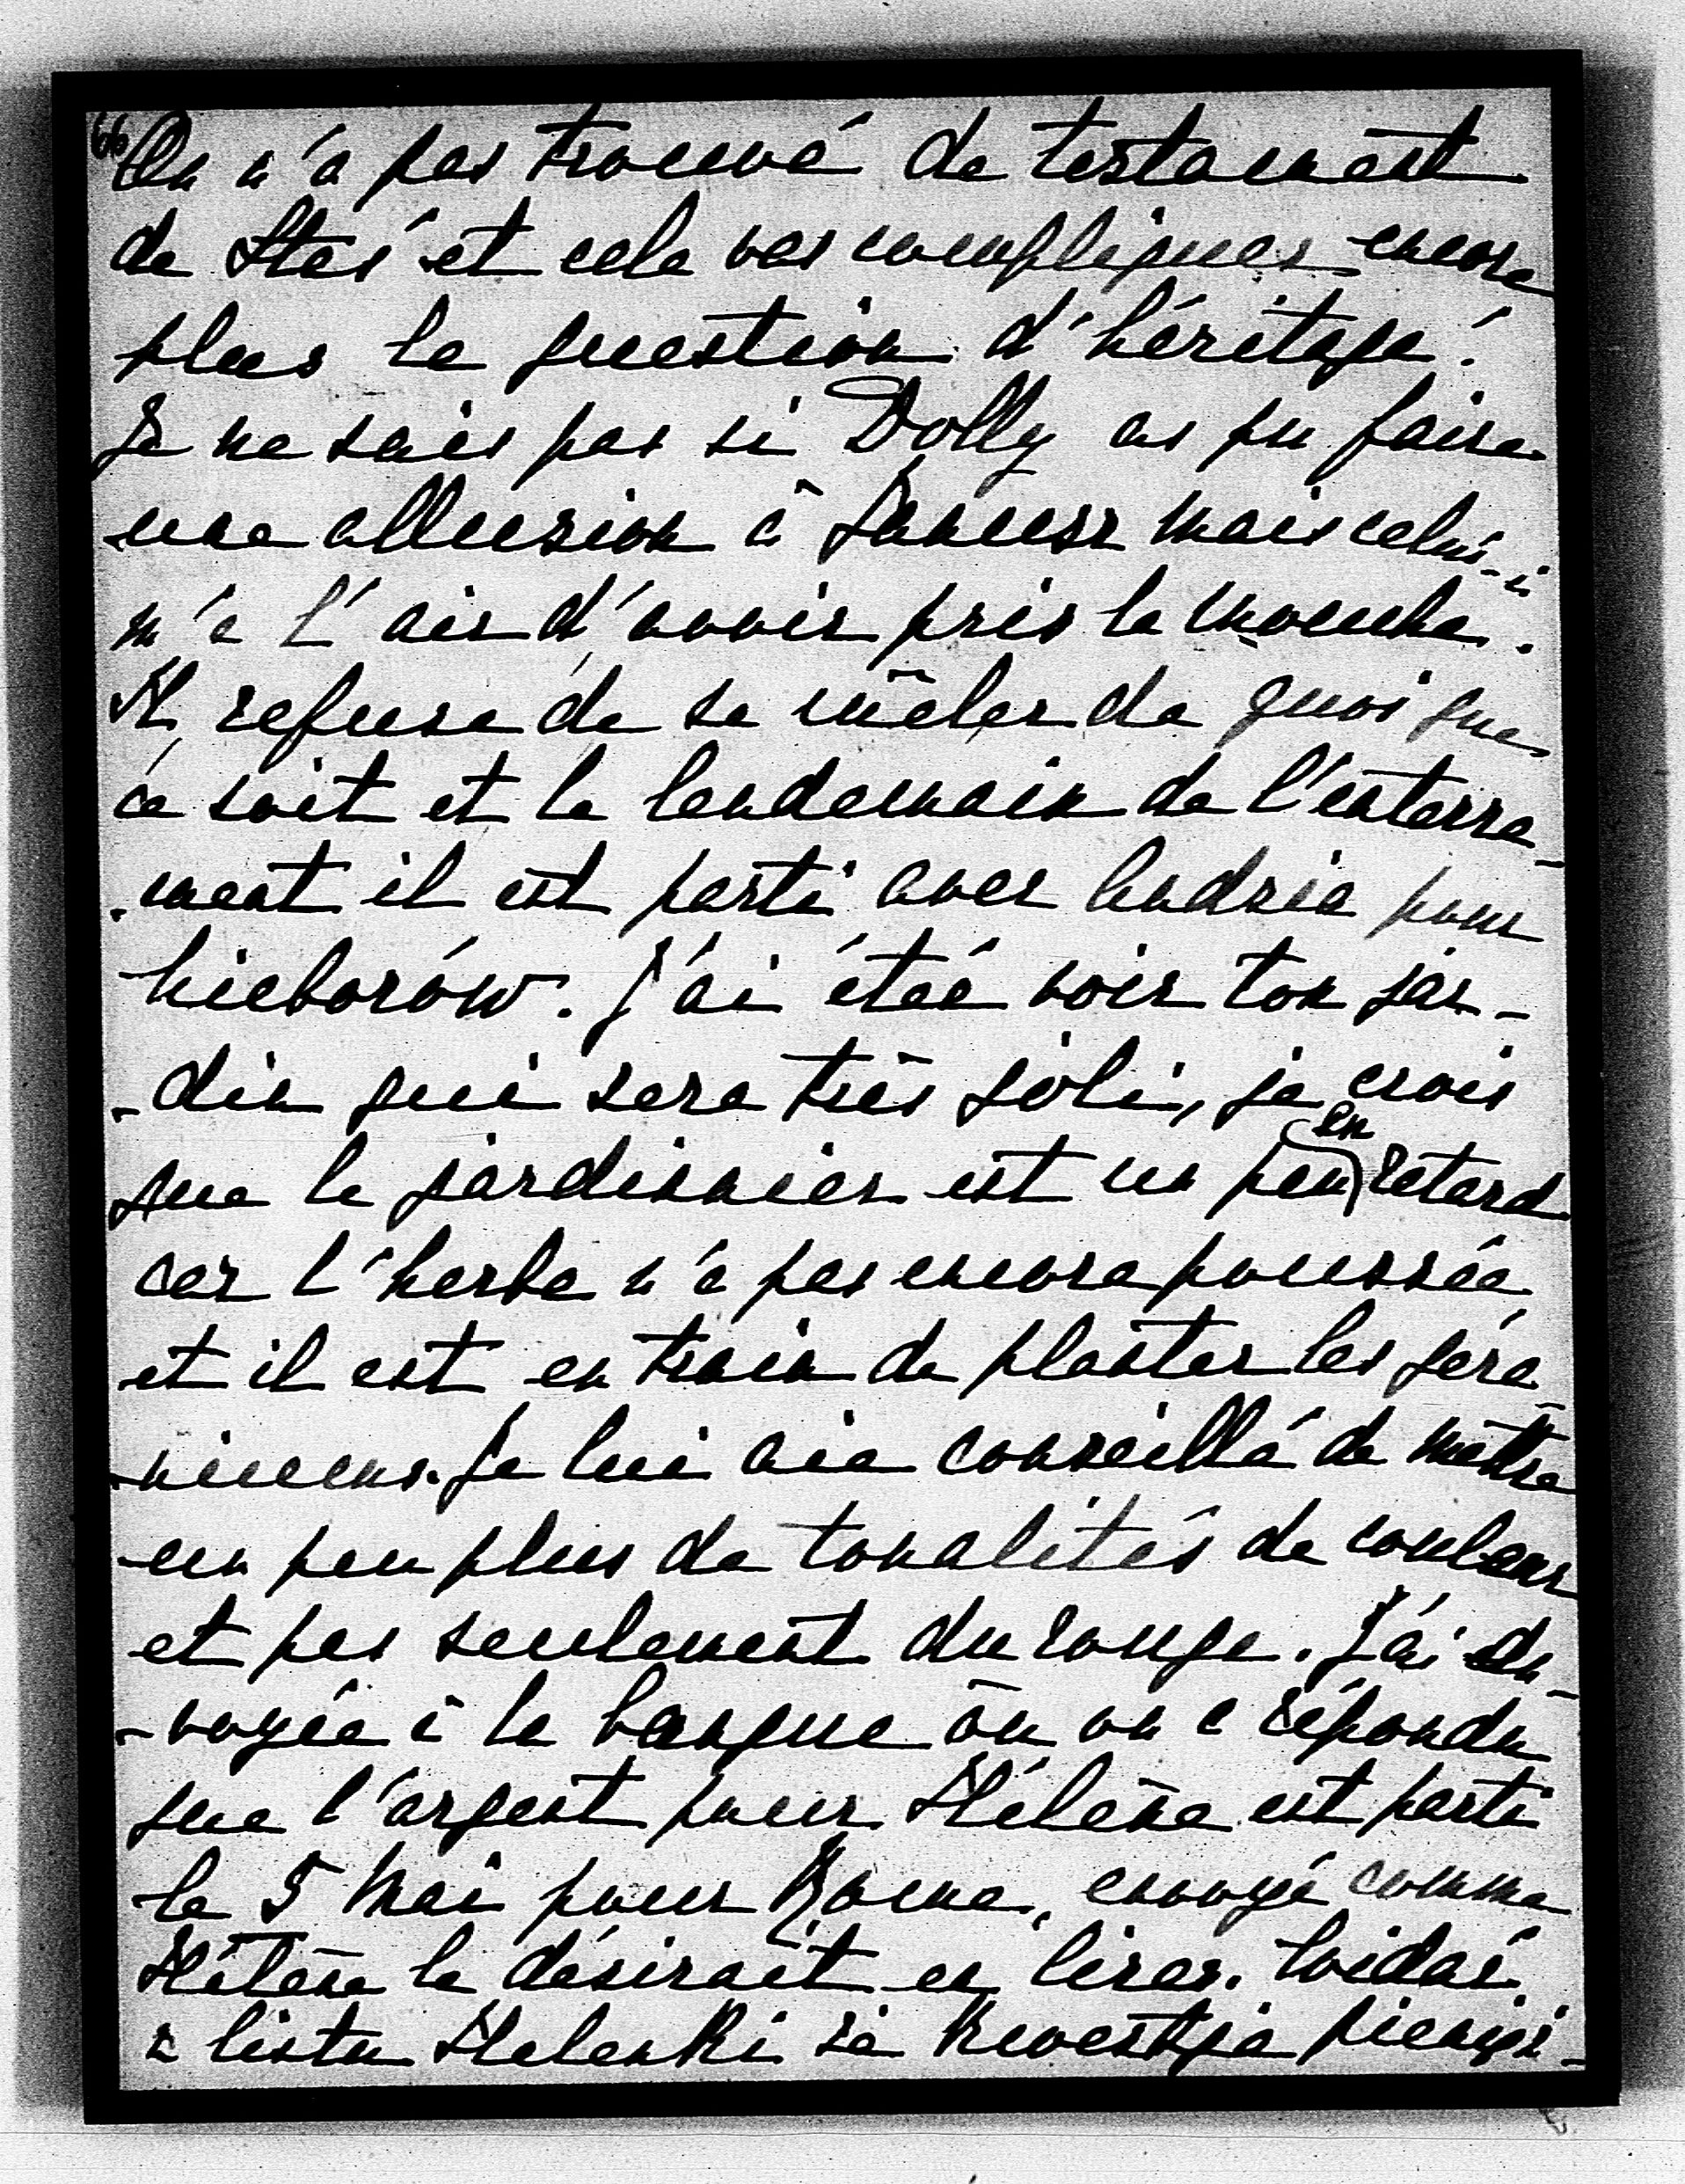 66
On n'a pas trouvé de testament
de Stas et cela vas compliquer encore
plus la question d'héritage!
Je ne sais pas si Dolly as pu faire
une allusion à Janusz mais celui-ci
m'a l'air d'avoir pris la mouche.
Il refuse de se mêler de quoi que
ce soit et le lendemain de l'enterre-
-ment il est parti avec Andrée pour
Nieborów. J'ai étée voir ton jar-
-din qui sera très joli, je crois
que le jardinnier est un peu en retard
car l'herbe n'a pas encore poussée
et il est en train de planter les géra-
-niums. Je lui aie conseillé de mettre
un peu plus de tonalités de couleur
et pas seulement du rouge. J'ai en-
-voyée à la banque où on a répondu
que l'argent pour Hélène est parti
le 5 Mai pour Rome, envoyé comme
Hélène le désirait en lires. Widać
z listu Helenki że kwestja pienię-